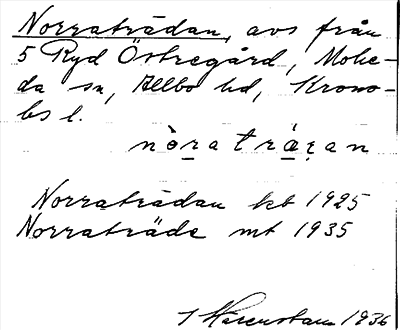 Norraträdan, avs från
5 Ryd Östregård, Mohe-
da sn, Allbo hd, Krono-
bs l.
nòratráɀan
Norraträdan kbt 1925
Norraträde mt 1935
1936